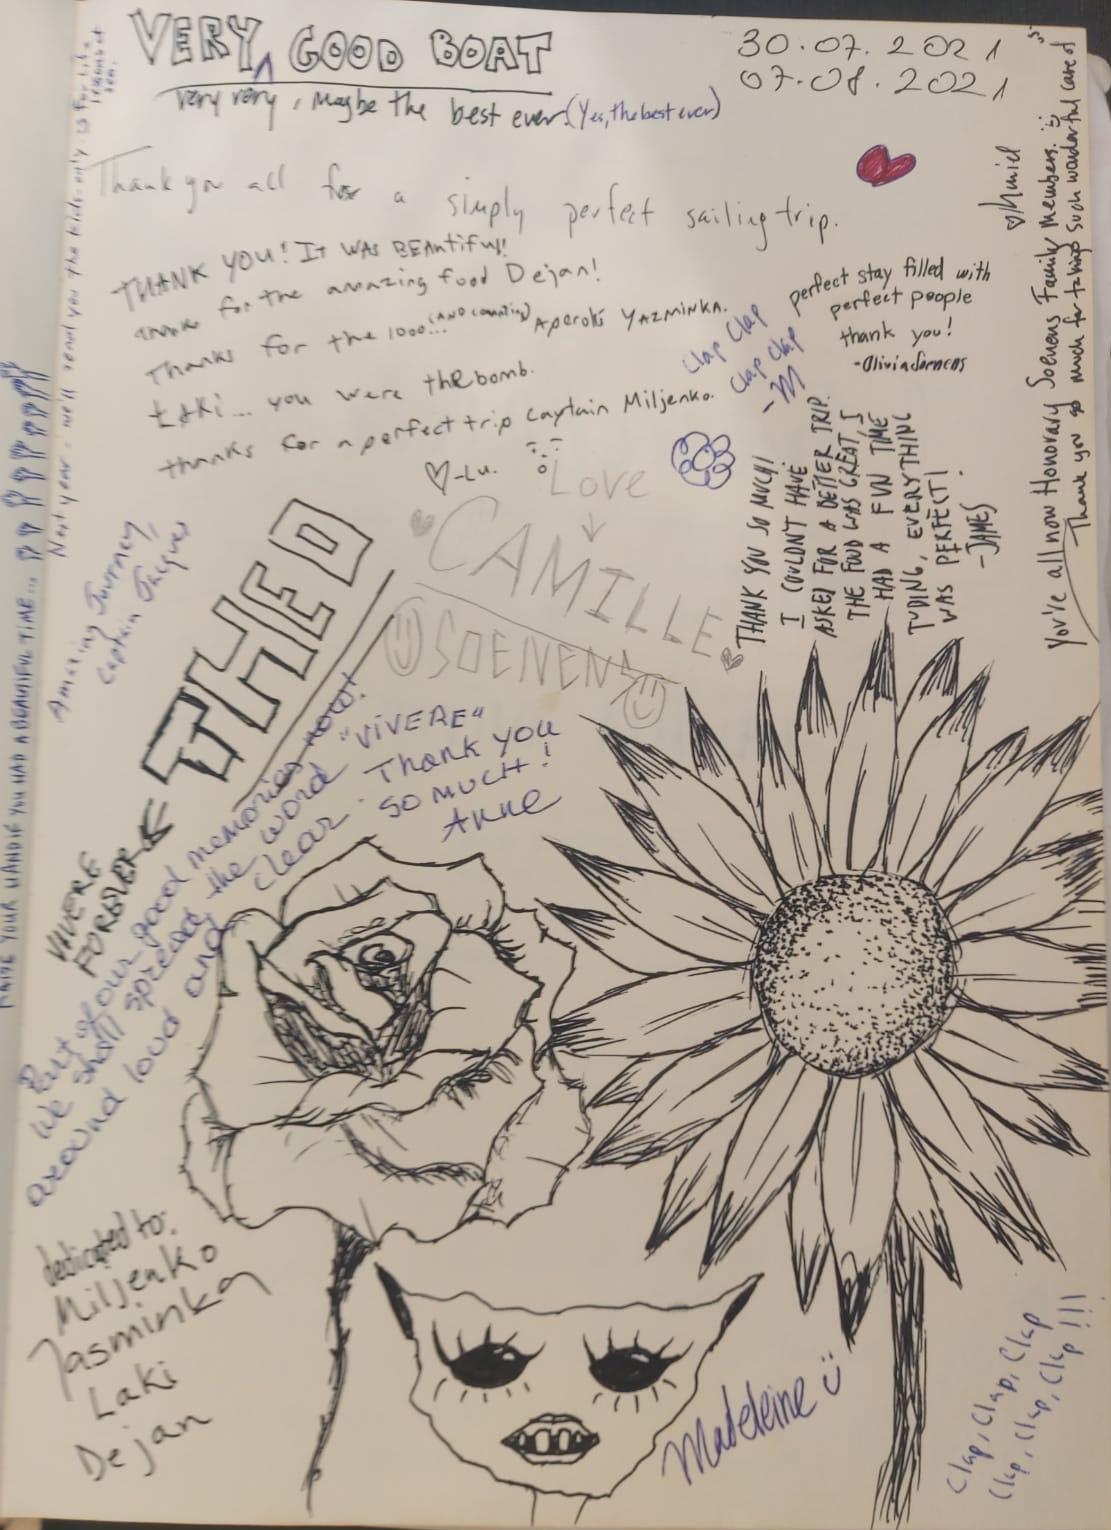 VERY GOOD BOAT
very very, Maybe the best ever (Yes, the best ever)
30.07.2021
07.08.2021
Thank you all for a simply perfect sailing trip.
THANK YOU! It WAS BEAUtifUl!
for the amazing food Dejan!
Thanks for the 1000... (AND COUNTING) Aperols YAZMINKA.
Laki... you were thE bomb.
thanks for a perfect trip Captain Miljenko.
♡-Lu.
Clap Clap
Clap Clap
-M
perfect stay filled with
perfect people
thank you!
-Olivia Soenens
THANK YOU SO MUCH!
I COULDN'T HAVE
ASKED FOR A BETTER TRIP.
THE FOOD WAS GREAT, I
HAD A FUN TIME
TUBING, EVERYTHING
WAS PERFECT!
-JAMES
You're all now Honorary Soenens Family Members. :)
Thank you so much for taking such wonderful care of
Love
CAMILLE
SOENENS
RAISE YOUR HAND IF YOU HAD A BEAUTIFUL TIME...
Next year, we'll send you the kids-only
Amazing Journey,
Captain Jacques
THEO
VIVERE
FOREVER
Part of our good memories now!
We shall spread the word "VIVERE"
around loud and clear. Thank you
so much!
Anne
dedicated to:
Miljenko
Jasminka
Laki
Dejan
Madeleine
Clap, Clap, Clap
Clap, Clap, Clap !!!